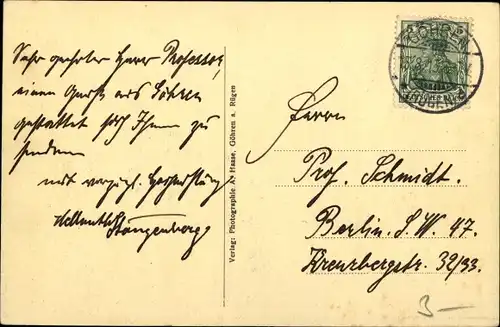 Sehr geehrter Herr Professor,
einen Gruß aus Göhren
gestattet sich Ihnen zu
senden
mit vorzügl. Hochachtung
Stangenberg
Verlag: Photographie A. Haase, Göhren a. Rügen
GÖHREN
(RÜGEN)
Herrn
Prof. Schmidt.
Berlin. S. W. 47.
Kreuzbergstr. 32/33.
3-